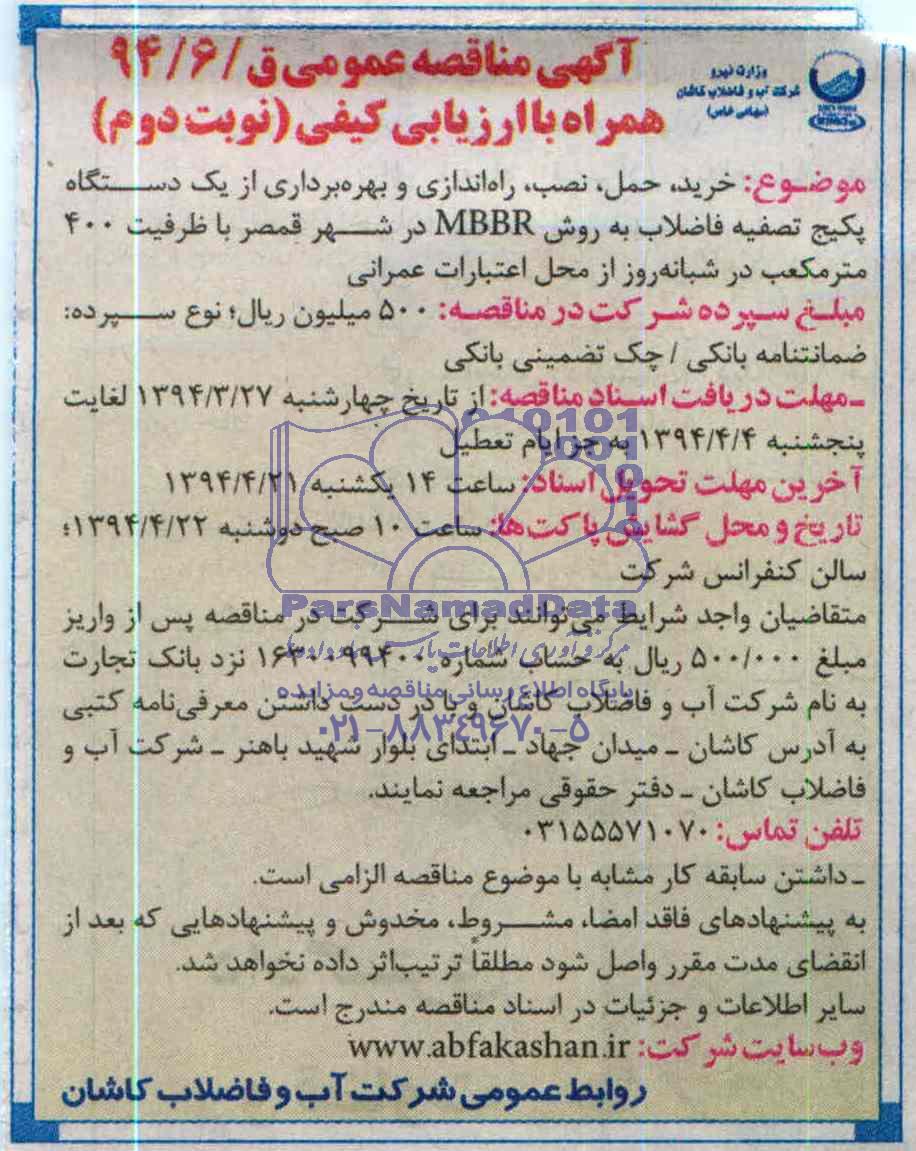 وزارت نیرو
شرکت آب و فاضلاب کاشان
(سهامی خاص)
آگهی مناقصه عمومی ق/۹۴/۶
همراه با ارزیابی کیفی (نوبت دوم)
موضوع: خرید، حمل، نصب، راه‌اندازی و بهره‌برداری از یک دستگاه
پکیج تصفیه فاضلاب به روش MBBR در شهر قمصر با ظرفیت ۴۰۰
مترمکعب در شبانه‌روز از محل اعتبارات عمرانی
مبلغ سپرده شرکت در مناقصه: ۵۰۰ میلیون ریال؛ نوع سپرده:
ضمانتنامه بانکی / چک تضمینی بانکی
ـ مهلت دریافت اسناد مناقصه: از تاریخ چهارشنبه ۱۳۹۴/۳/۲۷ لغایت
پنجشنبه ۱۳۹۴/۴/۴ به جز ایام تعطیل
آخرین مهلت تحویل اسناد: ساعت ۱۴ یکشنبه ۱۳۹۴/۴/۲۱
تاریخ و محل گشایش پاکت‌ها: ساعت ۱۰ صبح دوشنبه ۱۳۹۴/۴/۲۲؛
سالن کنفرانس شرکت
ParsNamadData
متقاضیان واجد شرایط می‌توانند برای شرکت در مناقصه پس از واریز
مبلغ ۵۰۰/۰۰۰ ریال به حساب شماره ۱۶۳۰۰۹۹۴۰۰ نزد بانک تجارت
پایگاه اطلاع رسانی مناقصه و مزایده
به نام شرکت آب و فاضلاب کاشان و با در دست داشتن معرفی‌نامه کتبی
۰۲۱-۸۸۳۴۹۶۷۰-۵
به آدرس کاشان ـ میدان جهاد ـ ابتدای بلوار شهید باهنر ـ شرکت آب و
فاضلاب کاشان ـ دفتر حقوقی مراجعه نمایند.
تلفن تماس: ۰۳۱۵۵۵۷۱۰۷۰
ـ داشتن سابقه کار مشابه با موضوع مناقصه الزامی است.
به پیشنهادهای فاقد امضا، مشروط، مخدوش و پیشنهادهایی که بعد از
انقضای مدت مقرر واصل شود مطلقاً ترتیب‌اثر داده نخواهد شد.
سایر اطلاعات و جزئیات در اسناد مناقصه مندرج است.
وب سایت شرکت: www.abfakashan.ir
روابط عمومی شرکت آب و فاضلاب کاشان